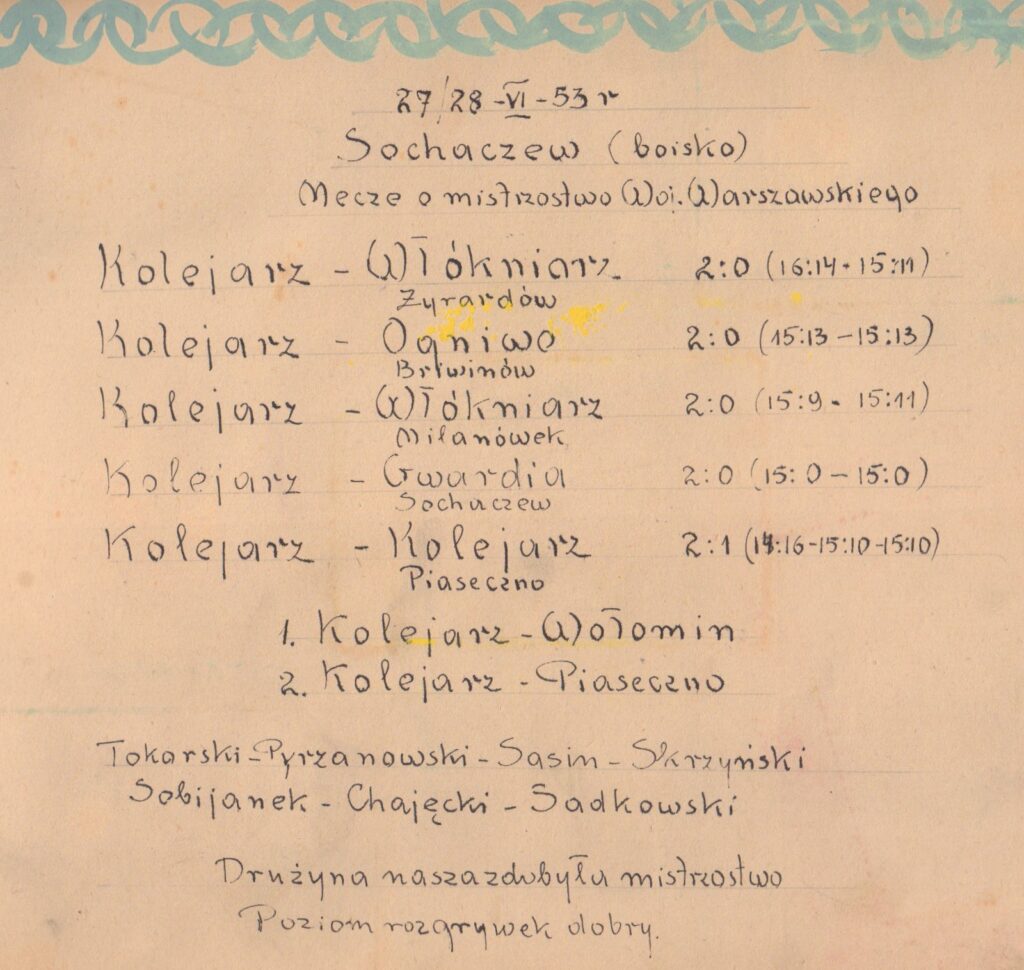 27/28-VI-53 r
Sochaczew (boisko)
Mecze o mistrzostwo Woj. Warszawskiego
Kolejarz - Włókniarz 2:0 (16:14 - 15:11)
Żyrardów
Kolejarz - Ogniwo 2:0 (15:13 - 15:13)
Brwinów
Kolejarz - Włókniarz 2:0 (15:9 - 15:11)
Milanówek
Kolejarz - Gwardia 2:0 (15:0 - 15:0)
Sochaczew
Kolejarz - Kolejarz 2:1 (14:16-15:10-15:10)
Piaseczno
1. Kolejarz - Wołomin
2. Kolejarz - Piaseczno
Tokarski - Pyrzanowski - Sasin - Skrzyński
Sobijanek - Chajęcki - Sadkowski
Drużyna nasza zdobyła mistrzostwo
Poziom rozgrywek dobry.